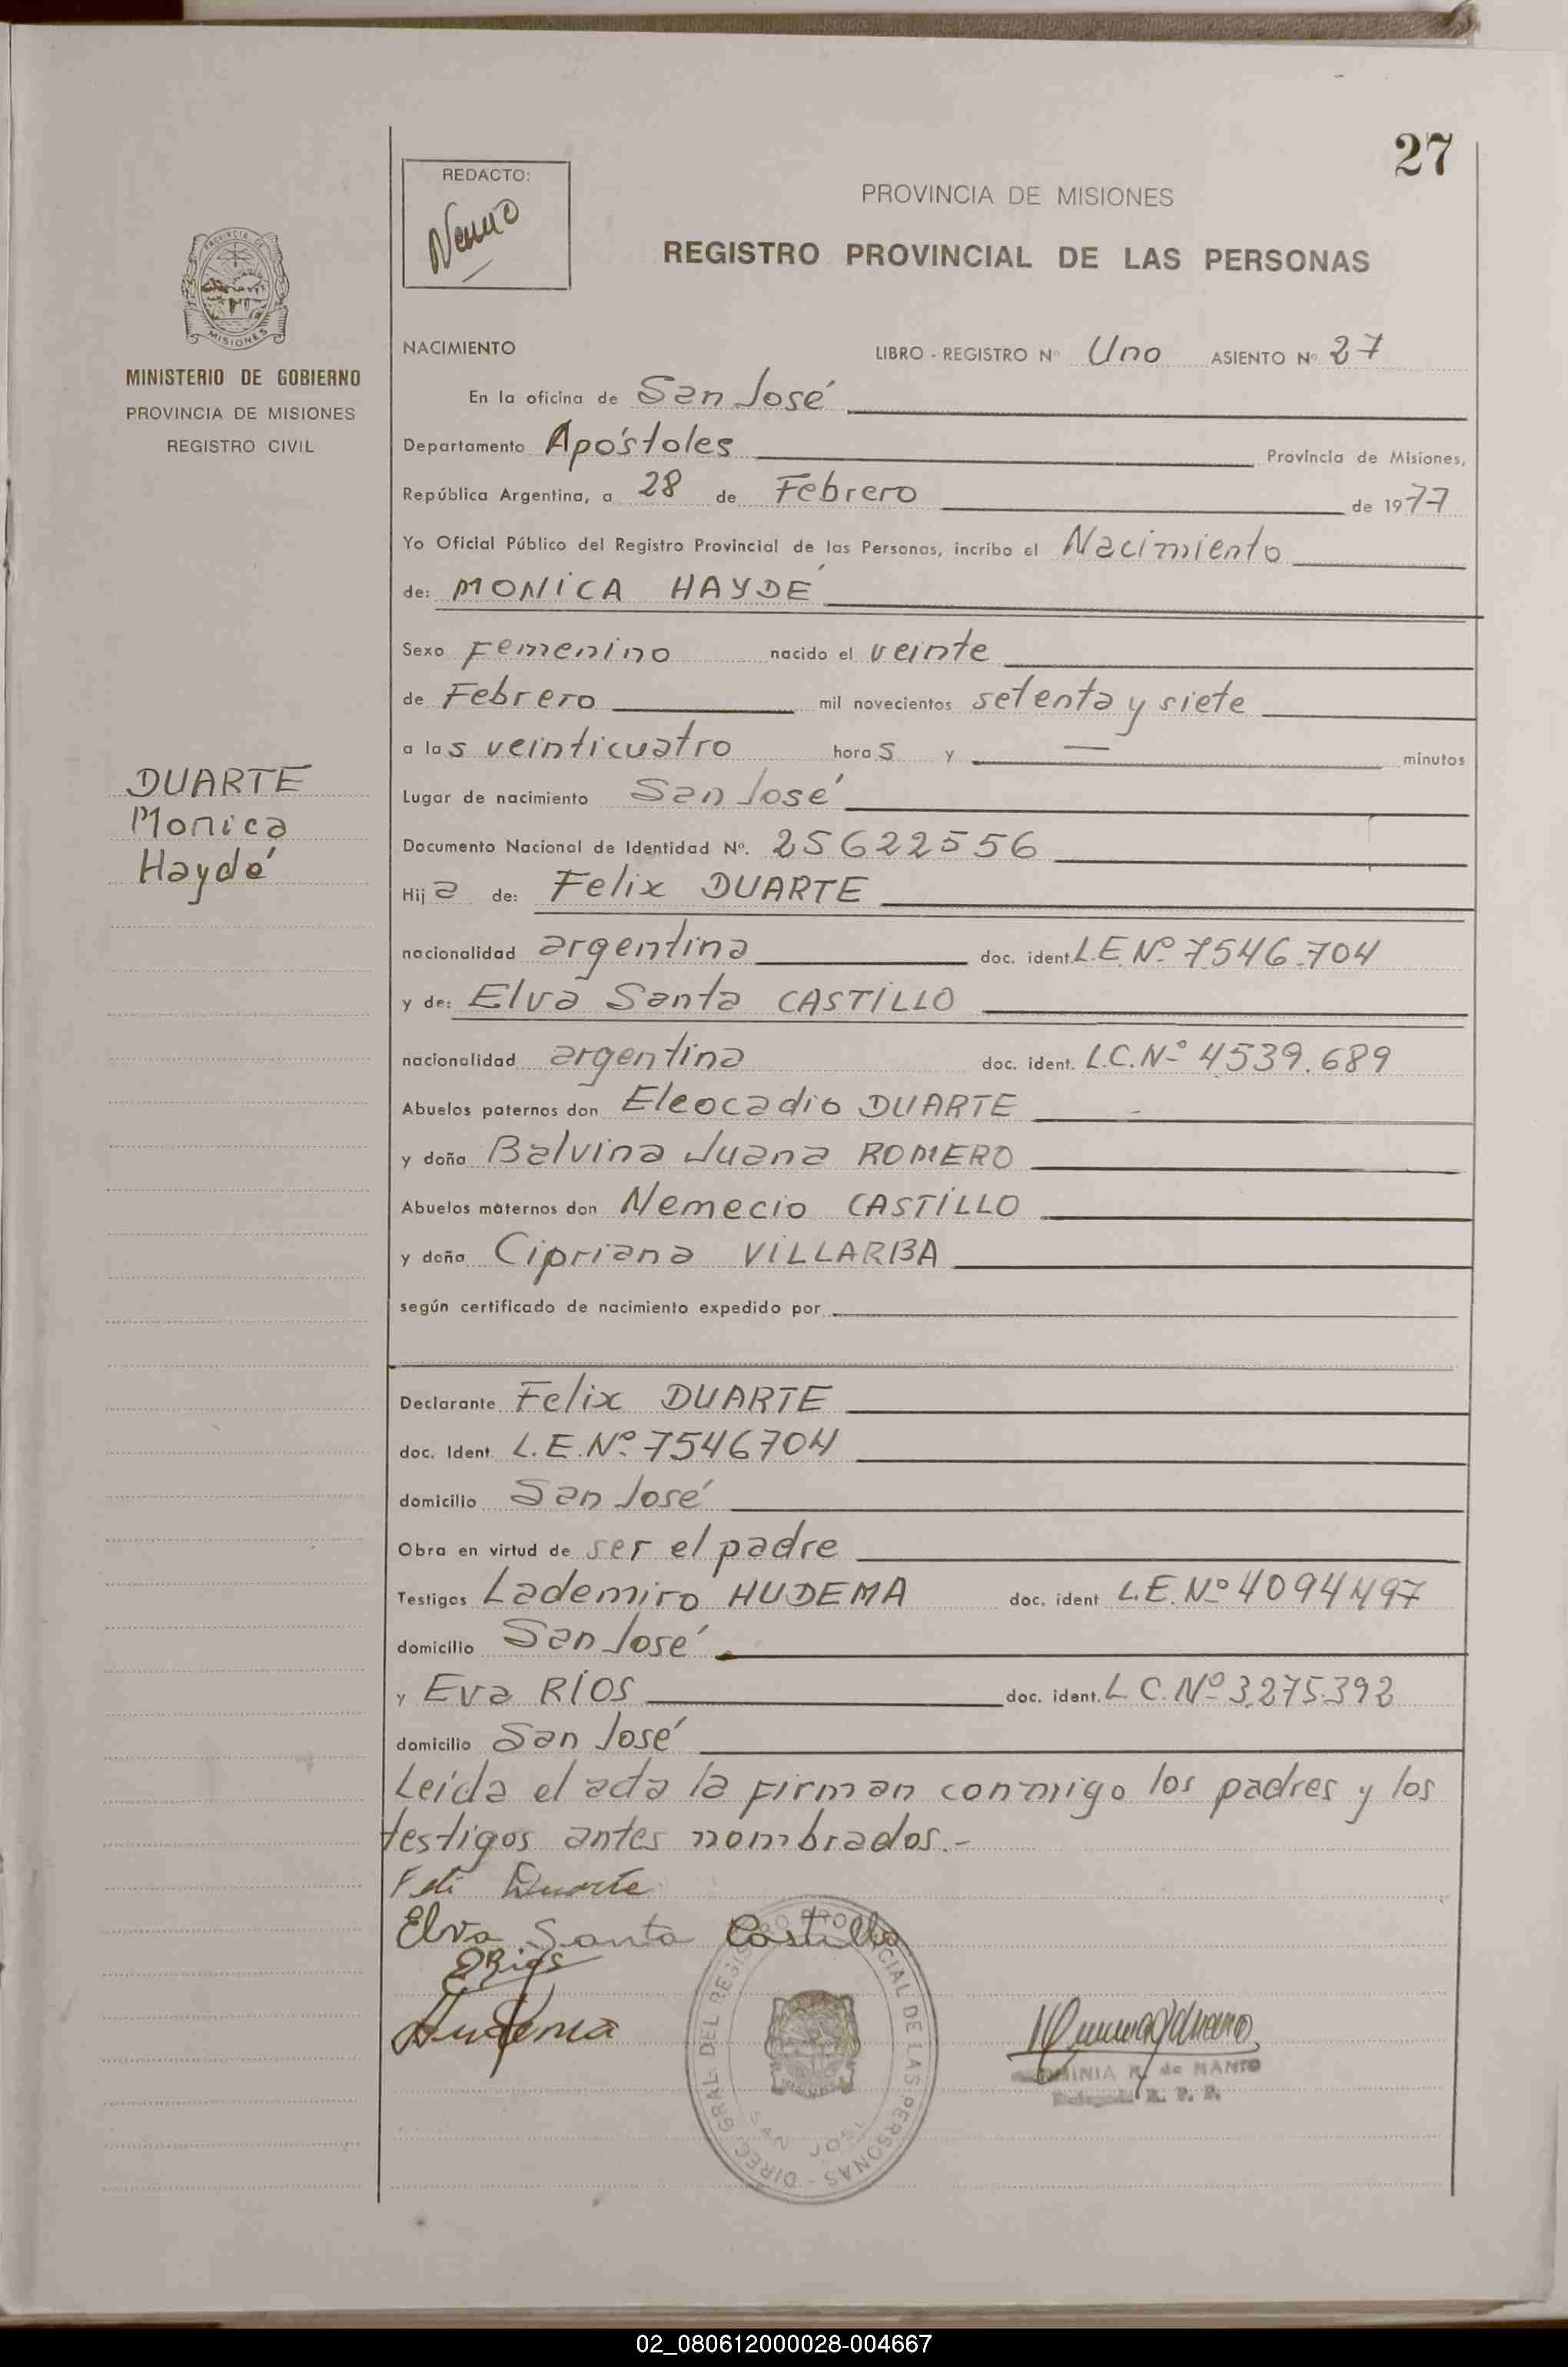 27
REDACTO:
PROVINCIA DE MISIONES
REGISTRO PROVINCIAL DE LAS PERSONAS
PROVINCIA DE
MISIONES
MINISTERIO DE GOBIERNO
PROVINCIA DE MISIONES
REGISTRO CIVIL
DUARTE
Monica
Haydé
NACIMIENTO LIBRO - REGISTRO Nº Uno ASIENTO Nº 27
En la oficina de San José
Departamento Apóstoles Provincia de Misiones,
República Argentina, a 28 de Febrero de 1977
Yo Oficial Público del Registro Provincial de las Personas, incribo el Nacimiento
de: MONICA HAYDÉ
Sexo Femenino nacido el veinte
de Febrero mil novecientos setenta y siete
a las veinticuatro horas y — minutos
Lugar de nacimiento San José
Documento Nacional de Identidad Nº. 25622556
Hija de: Felix DUARTE
nacionalidad argentina doc. ident. L.E.Nº 7.546.704
y de: Elva Santa CASTILLO
nacionalidad argentina doc. ident. L.C.Nº 4.539.689
Abuelos paternos don Eleocadio DUARTE
y doña Balvina Juana ROMERO
Abuelos maternos don Nemecio CASTILLO
y doña Cipriana VILLARBA
según certificado de nacimiento expedido por
Declarante Felix DUARTE
doc. Ident. L.E.Nº 7546704
domicilio San José
Obra en virtud de ser el padre
Testigos Lademiro HUDEMA doc. ident L.E.Nº 4094497
domicilio San José
y Eva RÍOS doc. ident. L C.Nº 3.275.392
domicilio San José
Leída el acta la firman conmigo los padres y los
testigos antes nombrados.-
Duarte
Elva Santa Castillo
ERios
Hudema
DIREC. GRAL. DEL REGISTRO PROVINCIAL DE LAS PERSONAS -
SAN JOSE
R. de MANIO
R. P. P.
02_080612000028-004667